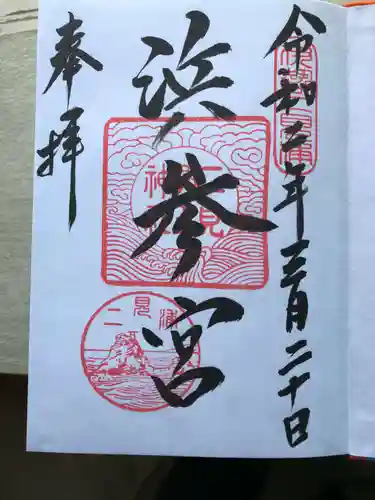 令和二年三月二十日
浜参宮
奉拝
二見
神
二見浦